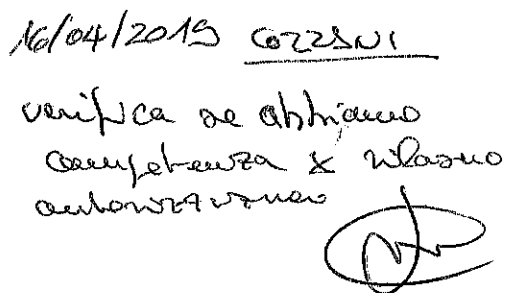 16/04/2019 COZZANI
verifica se abbiamo
competenza x rilascio
autorizzazione